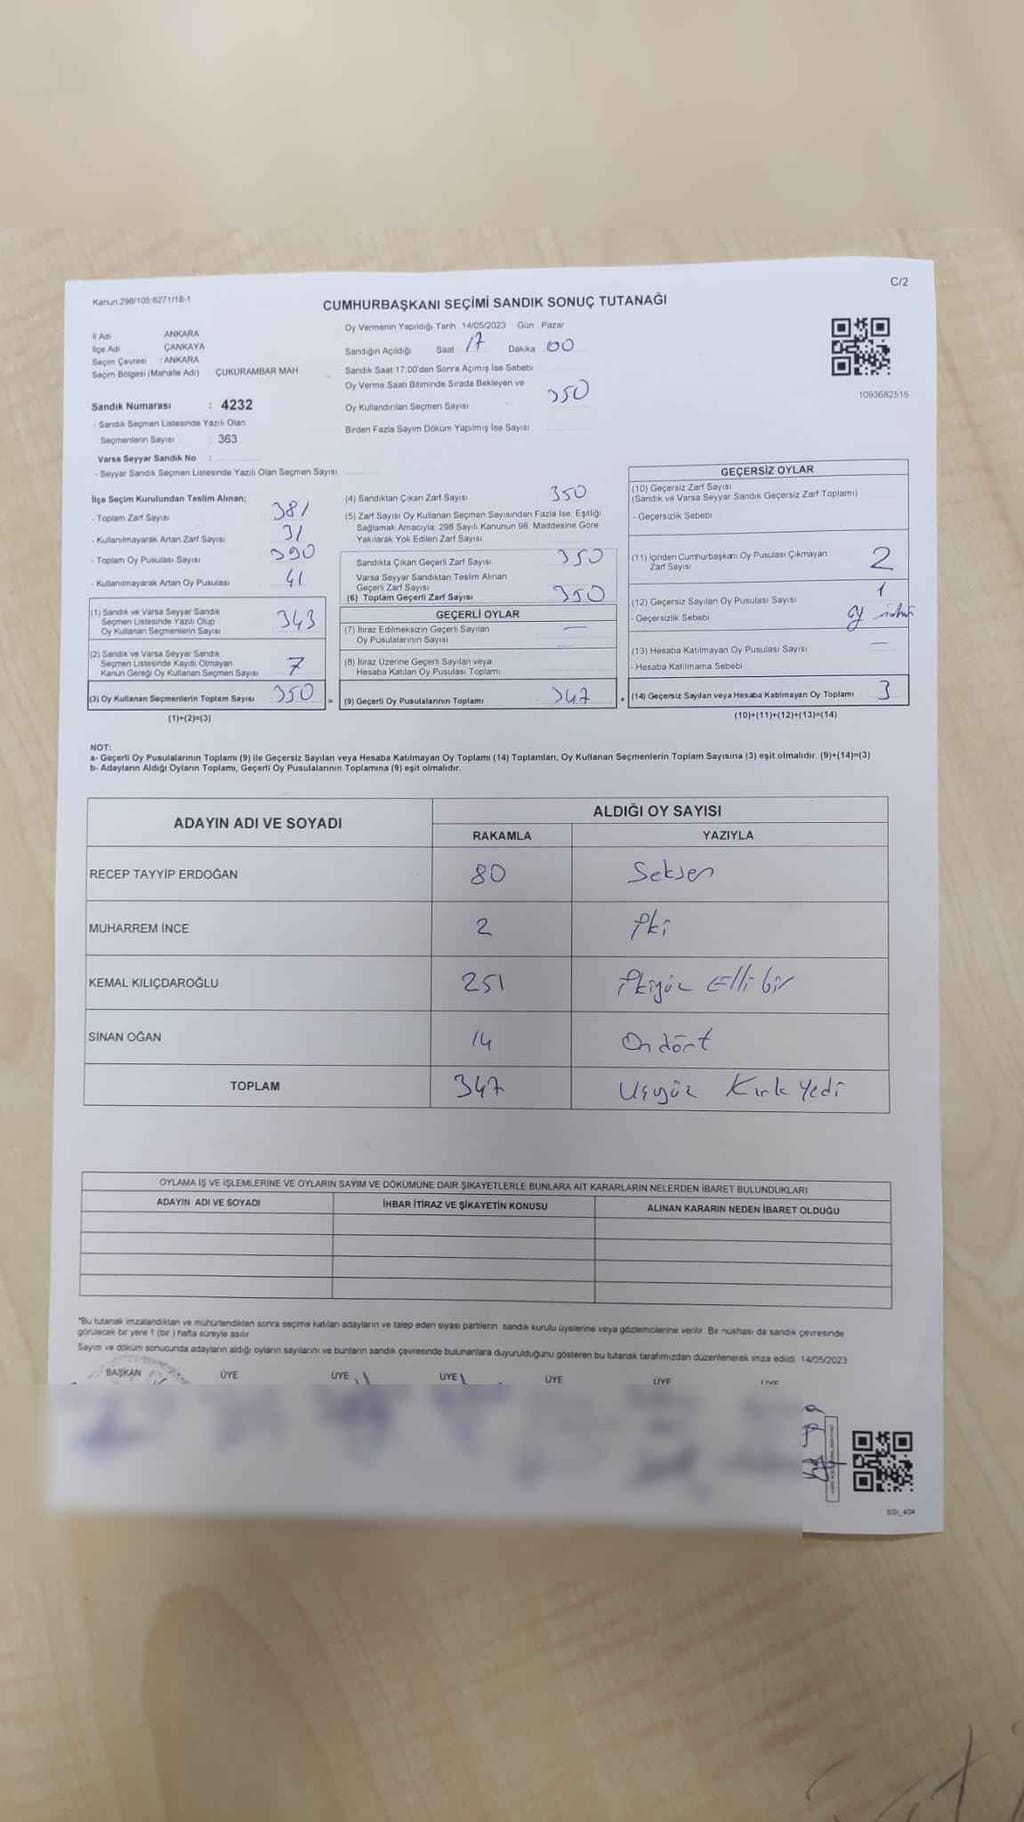 C/2
Kanun:298/105:6271/18-1
CUMHURBAŞKANI SEÇİMİ SANDIK SONUÇ TUTANAĞI
İl Adı ANKARA
İlçe Adı ÇANKAYA
Seçim Çevresi : ANKARA
Seçim Bölgesi (Mahalle Adı) ÇUKURAMBAR MAH
Oy Vermenin Yapıldığı Tarih 14/05/2023 Gün Pazar
Sandığın Açıldığı Saat 17 Dakika 00
Sandık Saat 17:00'den Sonra Açımış İse Sebebi
Oy Verme Saati Bitiminde Sırada Bekleyen ve
Oy Kullandırılan Seçmen Sayısı 350
Birden Fazla Sayım Döküm Yapılmış İse Sayısı
1093682515
Sandık Numarası : 4232
- Sandık Seçmen Listesinde Yazılı Olan
Seçmenlerin Sayısı : 363
Varsa Seyyar Sandık No :
- Seyyar Sandık Seçmen Listesinde Yazılı Olan Seçmen Sayısı
İlçe Seçim Kurulundan Teslim Alınan;
- Toplam Zarf Sayısı 381
- Kullanılmayarak Artan Zarf Sayısı 31
- Toplam Oy Pusulası Sayısı 390
- Kullanılmayarak Artan Oy Pusulası 41
(1) Sandık ve Varsa Seyyar Sandık
Seçmen Listesinde Yazılı Olup
Oy Kullanan Seçmenlerin Sayısı 343
(2) Sandık ve Varsa Seyyar Sandık
Seçmen Listesinde Kayıtlı Olmayan
Kanun Gereği Oy Kullanan Seçmen Sayısı 7
(3) Oy Kullanan Seçmenlerin Toplam Sayısı 350
(1)+(2)=(3)
(4) Sandıktan Çıkan Zarf Sayısı 350
(5) Zarf Sayısı Oy Kullanan Seçmen Sayısından Fazla İse, Eşitliği
Sağlamak Amacıyla; 298 Sayılı Kanunun 98. Maddesine Göre
Yakılarak Yok Edilen Zarf Sayısı
Sandıkta Çıkan Geçerli Zarf Sayısı 350
Varsa Seyyar Sandıktan Teslim Alınan
Geçerli Zarf Sayısı
(6) Toplam Geçerli Zarf Sayısı 350
GEÇERLİ OYLAR
(7) İtiraz Edilmeksizin Geçerli Sayılan
Oy Pusulalarının Sayısı —
(8) İtiraz Üzerine Geçerli Sayılan veya
Hesaba Katılan Oy Pusulası Toplamı
= (9) Geçerli Oy Pusulalarının Toplamı 347
GEÇERSİZ OYLAR
(10) Geçersiz Zarf Sayısı
(Sandık ve Varsa Seyyar Sandık Geçersiz Zarf Toplamı)
- Geçersizlik Sebebi
(11) İçinden Cumhurbaşkanı Oy Pusulası Çıkmayan
Zarf Sayısı 2
(12) Geçersiz Sayılan Oy Pusulası Sayısı 1
- Geçersizlik Sebebi
(13) Hesaba Katılmayan Oy Pusulası Sayısı —
- Hesaba Katılmama Sebebi
+ (14) Geçersiz Sayılan veya Hesaba Katılmayan Oy Toplamı 3
(10)+(11)+(12)+(13)=(14)
NOT:
a- Geçerli Oy Pusulalarının Toplamı (9) ile Geçersiz Sayılan veya Hesaba Katılmayan Oy Toplamı (14) Toplamları, Oy Kullanan Seçmenlerin Toplam Sayısına (3) eşit olmalıdır. (9)+(14)=(3)
b- Adayların Aldığı Oyların Toplamı, Geçerli Oy Pusulalarının Toplamına (9) eşit olmalıdır.
ADAYIN ADI VE SOYADI
ALDIĞI OY SAYISI
RAKAMLA YAZIYLA
RECEP TAYYİP ERDOĞAN 80 Seksen
MUHARREM İNCE 2 İki
KEMAL KILIÇDAROĞLU 251 İkiyüz Elli bir
SİNAN OĞAN 14 On dört
TOPLAM 347 Üçyüz Kırk yedi
OYLAMA İŞ VE İŞLEMLERİNE VE OYLARIN SAYIM VE DÖKÜMÜNE DAİR ŞİKAYETLERLE BUNLARA AİT KARARLARIN NELERDEN İBARET BULUNDUKLARI
ADAYIN ADI VE SOYADI İHBAR İTİRAZ VE ŞİKAYETİN KONUSU ALINAN KARARIN NEDEN İBARET OLDUĞU
"Bu tutanak imzalandıktan ve mühürlendikten sonra seçime katılan adayların ve talep eden siyasi partilerin sandık kurulu üyelerine veya gözlemcilerine verilir. Bir nüshası da sandık çevresinde
görülecek bir yere 1 (bir) hafta süreyle asılır
Sayım ve döküm sonucunda adayların aldığı oyların sayılarını ve bunların sandık çevresinde bulunanlara duyurulduğunu gösteren bu tutanak tarafımızdan düzenlenerek imza edildi. 14/05/2023
BAŞKAN ÜYE ÜYE ÜYE ÜYE ÜYE ÜYE
SSI_404